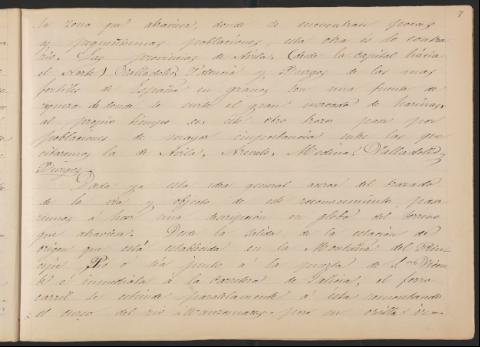 7
la zona que atraviesa, donde se encuentran pocas
y pequeñísimas poblaciones, esta otra es lo contra-
rio. Las provincias de Avila, (desde la capital hácia
el Norte) Valladolid, y Burgos de las mas
fertiles de España en granos son una fuente de
riqueza de donde se surte el gran mercado de harinas,
al propio tiempo es este otro trozo pasa por
poblaciones de mayor importancia entre las que
citaremos la de Avila, Arevalo, Medina, Valladolid y
Burgos.
Dada ya esta idea general acerca del trazado
de la via y objeto de este reconocimiento, pasa-
remos á hacer una descripcion en globo del terreno
que atraviesa. Desde la salida de la estacion de
origen que está establecida en la Montaña del Prin-
cipe Pio ó sea junto á la puerta de Sn. Vicen-
te é inmediata á la carretera de Galicia, el ferro
carril se estiende paralelamente á esta remontando
el curso del rio Manzanares, por su orilla iz-